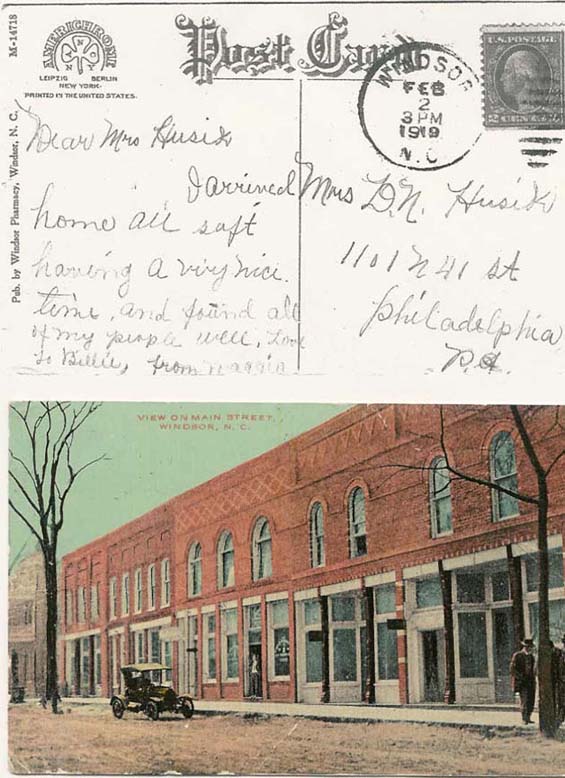 M-14718
AMERICHROME
LEIPZIG BERLIN
NEW YORK.
PRINTED IN THE UNITED STATES.
Post Card
WINDSOR
FEB
2
3 PM
1919
N.C.
U.S. POSTAGE
2 CENTS 2
Pub. by Windsor Pharmacy, Windsor, N. C.
Dear Mrs Husik
I arrived
home all saft
having a viry nice.
time, and found all
of my people well, Love
to Billie, from Maggie
Mrs D.N. Husik
1101 N 41 st
Philadelphia
Pa.
VIEW ON MAIN STREET,
WINDSOR, N. C.